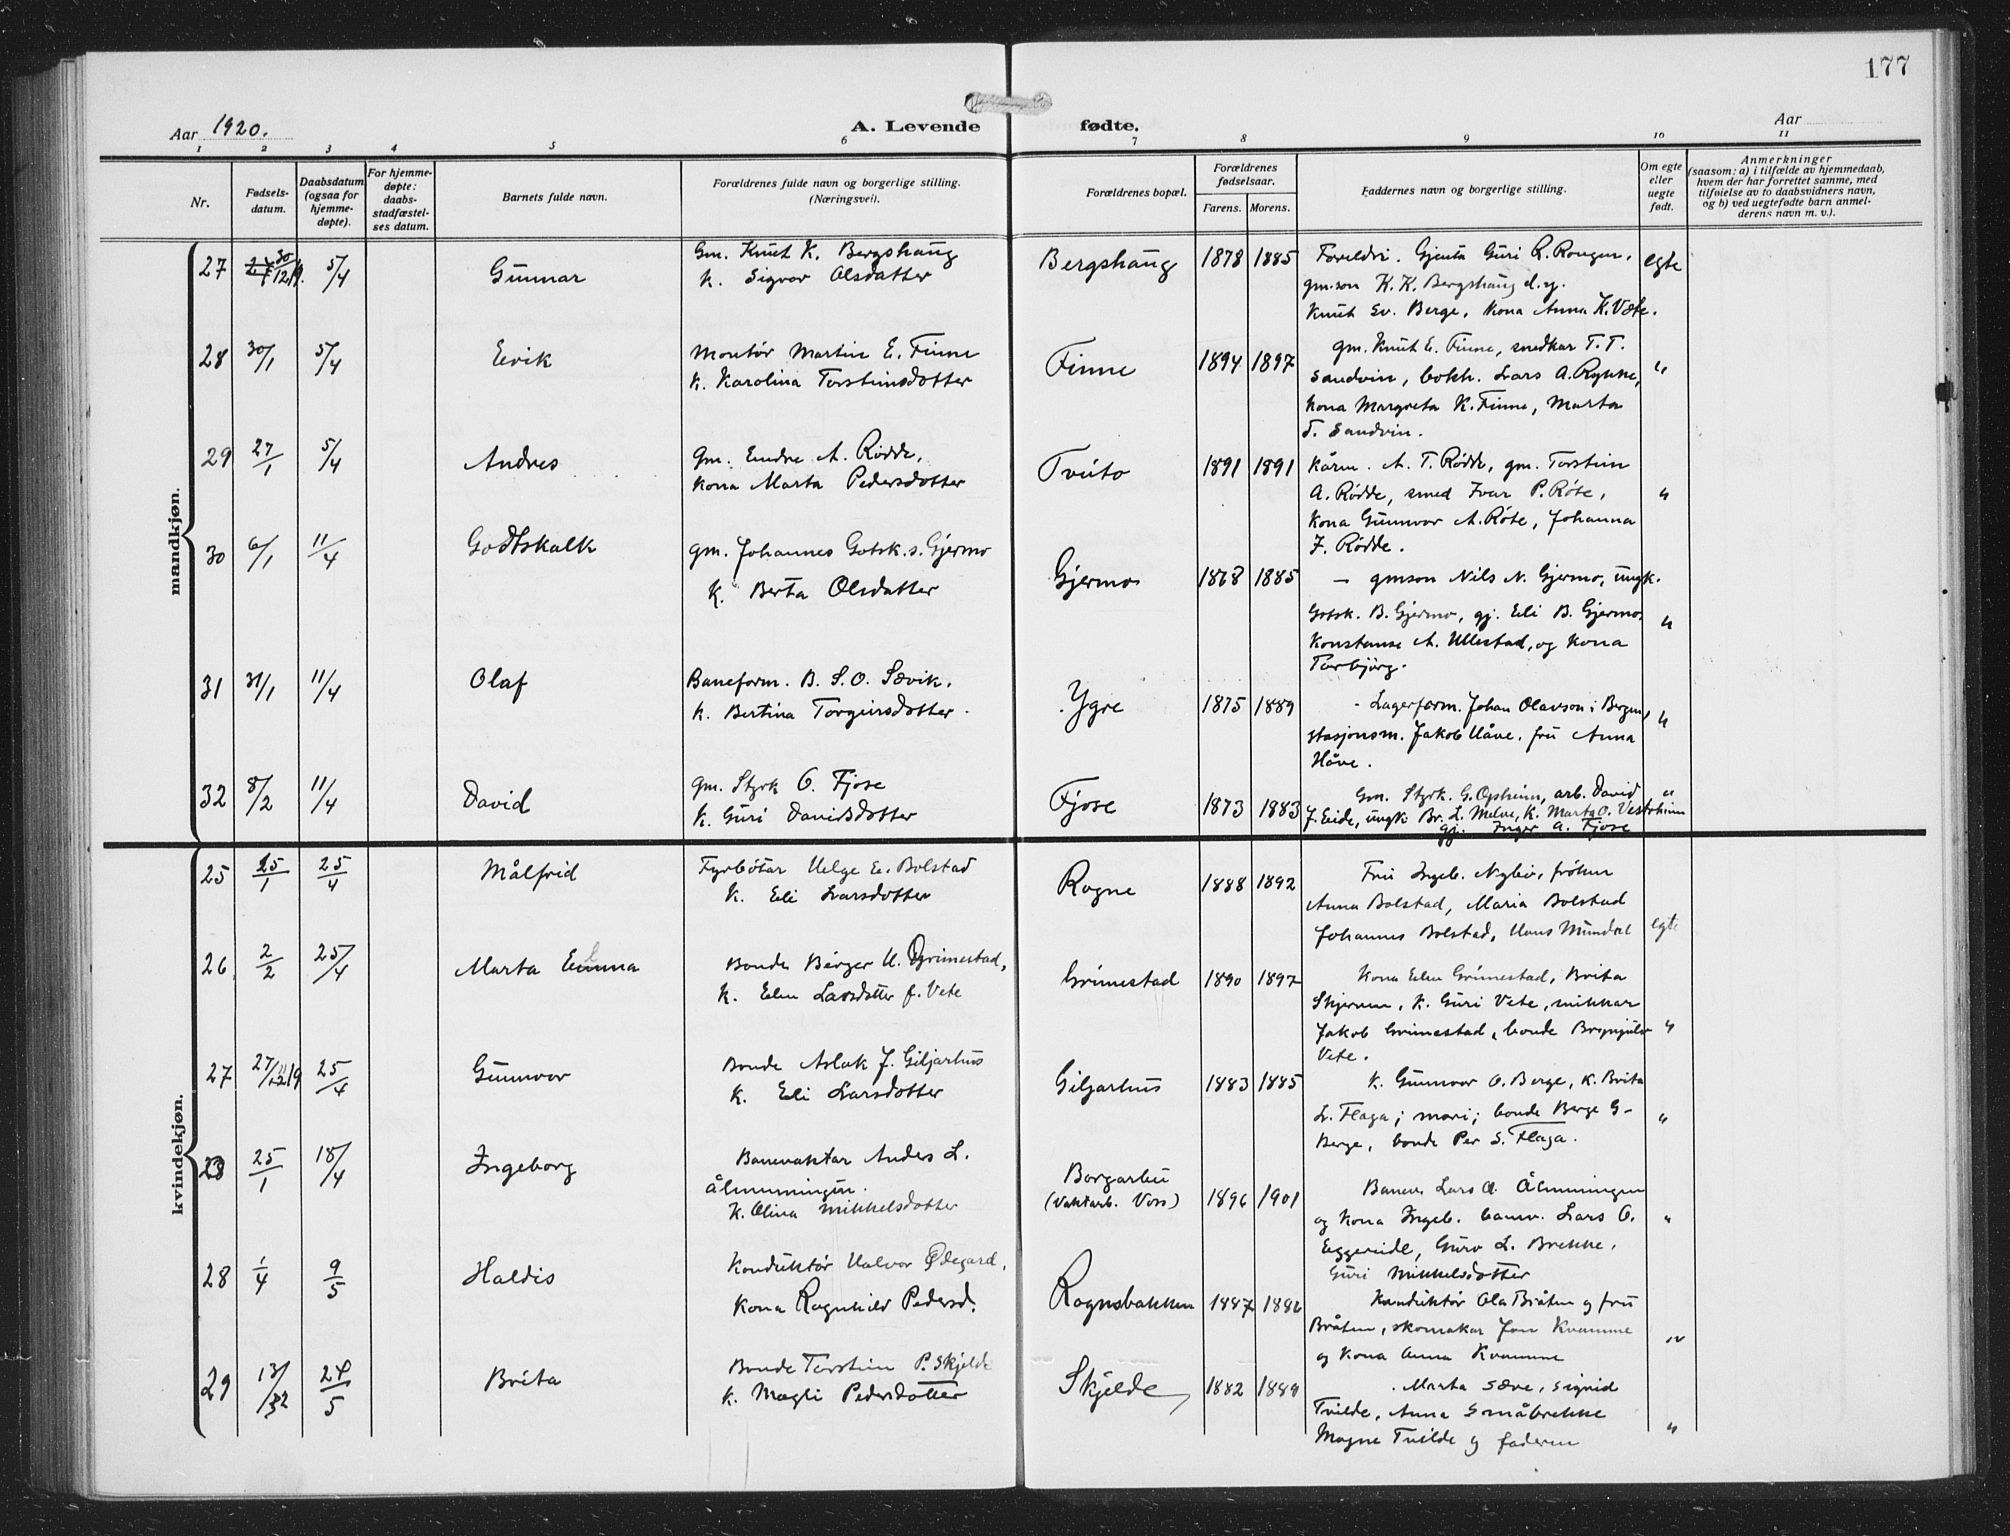 177
Aar 1920.
A. Levende fødte.
Aar
1 2 3 4 5 6 7 8 9 10 11
Nr.
Fødsels-
datum.
Daabsdatum
(ogsaa for
hjemme-
døpte).
For hjemme-
døpte:
daabs-
stadfæstel-
ses datum.
Barnets fulde navn.
Forældrenes fulde navn og borgerlige stilling.
(Næringsvei).
Forældrenes bopæl.
Forældrenes
fødselsaar.
Farens. Morens.
Faddernes navn og borgerlige stilling.
Om egte
eller
uegte
født.
Anmerkninger
(saasom: a) i tilfælde av hjemmedaab,
hvem der har forrettet samme, med
tilføielse av to daabsvidners navn,
og b) ved uegtefødte barn anmel-
derens navn m. v.).
mandkjøn.
27 30/12 19. 5/4 Gunnar
Gm. Knut K. Bergshaug
K. Sigvor Olsdatter
Bergshaug 1878 1885
Foreldri. Gjenta Guri R. Rongen,
gm.son K. K. Bergshaug d.y.
Knut Sv. Berge, Kona Anna K. Væte.
egte
28 30/1 5/4 Eivik
Montør Martin E. Finne
K. Karolina Torsteinsdotter
Finne 1894 1897
gm. Knut E. Finne, smedkar T. T.
Sandvin, bokh. Lars A. Rykke,
Kona Margreta K. Finne, Marta
T. Sandvin.
"
29 27/1 5/4 Andres
Gm. Endre A. Rødde,
Kona Marta Pedersdotter
Tvüto 1891 1891
Kårm. A. T. Rødde, gm. Torstein
A. Rødde, smed Ivar P. Røte,
Kona Gunnvor A. Røte, Johanna
J. Rødde.
"
30 6/1 11/4 Godtskalk
gm. Johannes Gotsk.s. Gjermo
K. Berta Olsdatter
Gjermo 1868 1885
– gmson Nils N. Gjermo, ungk.
Gotsk. B. Gjermo, gj. Eli B. Gjermo,
Konstanse A. Ullestad, og Kona
Torbjørg.
"
31 31/1 11/4 Olaf
Baneform. B. S. O. Sævik,
K. Bertina Torgeirsdotter.
Ygre 1875 1889
- Lagerform. Johan Olavson i Bergen,
stasjonsm. Jakob Håve. fru Anna
Håve.
"
32 8/2 11/4 David
gm. Styrk O. Fjose
K. Guri Davidsdotter
Fjose 1873 1883
Gm. Styrk. G. Opheim, arb. David
J. Eide, ungk Br. L. Melve, K. Marta O. Vestrheim
gj. Inger A. Fjose
"
kvindekjøn.
25 25/1 25/4 Målfrid
Fyrbøtar Helge E. Bolstad
K. Eli Larsdotter
Rogne 1888 1892
Fru Ingeb. Nybø, frøken
Anna Bolstad, Maria Bolstad
Johannes Bolstad, Hans Mundal
egte
26 2/2 25/4 Marta Emma
Bonde Børger H. Grimestad,
K. Elen Larsdotter f. Vete
Grimestad 1890 1897
Kona Elen Grimestad, Brita
Skjerven, K. Guri Vete, mikkar
Jakob Grimestad, bonde Brynjulv
Vete.
"
27 27/12 19 25/4 Gunnvor
Bonde Aslak J. Giljarhus
K. Eli Larsdotter
Giljarhus 1883 1885
K. Gunnvor O. Berge, K. Brita
L. Flaga; bonde Berge G-
Berge, bonde Per S. Flaga.
"
25/1 18/4 Ingeborg
Banevaktar Anders L.
Ålmenningen.
K. Olina Mikkelsdotter
Borgarhu
(Vaktarb. Voss) 1896 1901
Banev. Lars A. Ålmenningen
og Kona Ingeb. banv. Lars O.
Eggereide, Guro L. Brekke,
Guri Mikkelsdotter
"
28 1/4 9/5 Haldis
Konduktør Halvor Ødegard,
Kona Ragnhild Pedersd.
Rognsbakken 1887 1886
Konduktør Ola Bråten og fru
Bråten, skomakar Jon Kvamme
og Kona Anna Kvamme
"
29 13/2 24/5 Brita
Bonde Torstein P. Skjelde
K. Magli Pedersdotter
Skjelde 1882 1889
Marta Sæve, Sigrid
Tvilde, Anna Småbrekke
Magne Tvilde og faderen
"